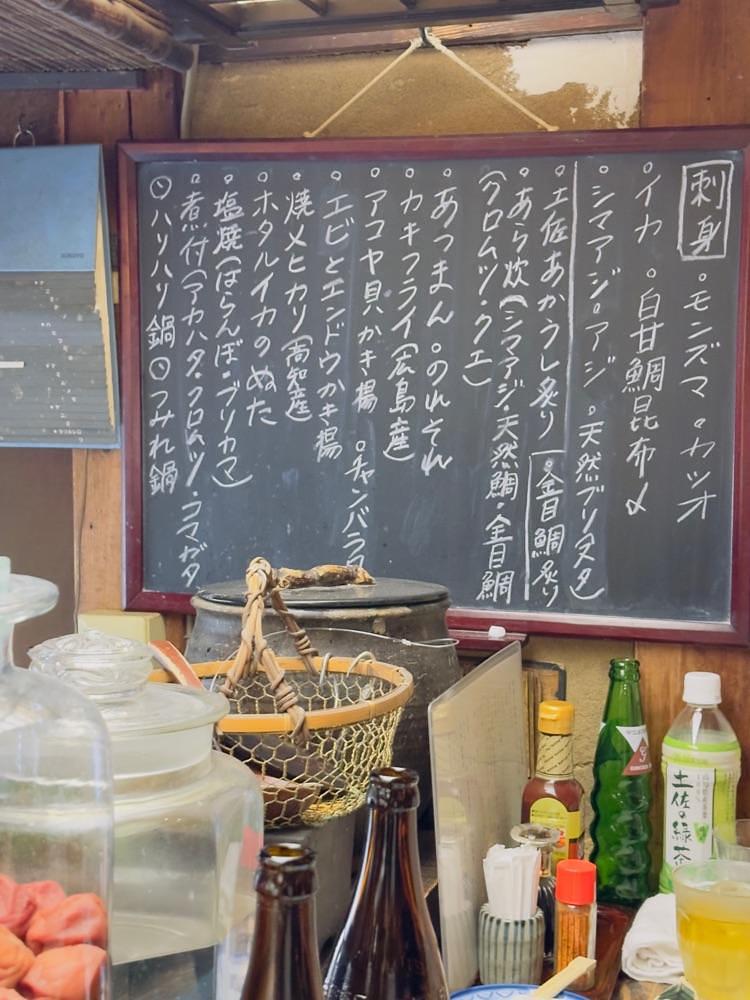 刺身 ・モンズマ ・カツオ
・イカ ・白甘鯛昆布〆
・シマアジ・アジ ・天然ブリ(ヌタ)
・土佐あかうし炙り ・金目鯛炙り
・あら炊(シマアジ・天然鯛・金目鯛
(クロムツ・クエ)
・あつまん ・のれそれ
・カキフライ(広島産)
・アコヤ貝かき揚 ・チャンバラ
・エビとエンドウかき揚
・焼メヒカリ(高知産)
・ホタルイカのぬた
・塩焼(はらんぼ・ブリカマ)
・煮付(アカハタ・クロムツ・コマガタ
ハリハリ鍋 つみれ鍋
土佐の緑茶